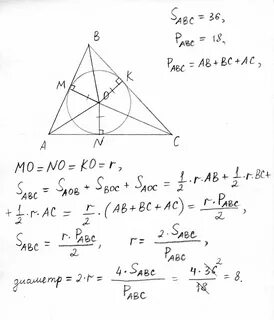 S_ABC = 36,
P_ABC = 18,
P_ABC = AB+BC+AC,
B
M
K
O
A
N
C
MO=NO=KO=r,
S_ABC = S_AOB + S_BOC + S_AOC = 1/2·r·AB + 1/2·r·BC+
+ 1/2·r·AC = r/2·(AB+BC+AC) = r·P_ABC/2,
S_ABC = r·P_ABC/2, r = 2·S_ABC/P_ABC,
диаметр = 2·r = 4·S_ABC/P_ABC = 4·36 2/18 = 8.